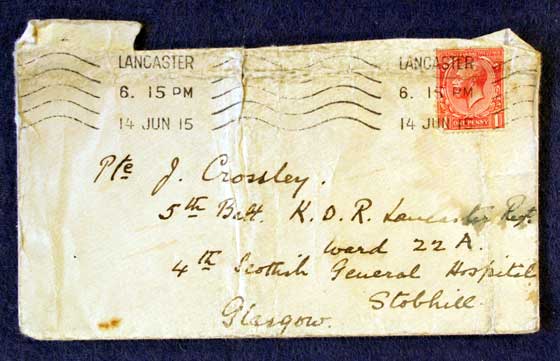 LANCASTER LANCASTER
6. 15 PM 6. 15 PM
14 JUN 15 14 JUN
ONE PENNY 1
Pte J. Crossley.
5th Batt. K. O. R. Lancaster Regt.
Ward 22 A.
4th Scottish General Hospital
Stobhill.
Glasgow.